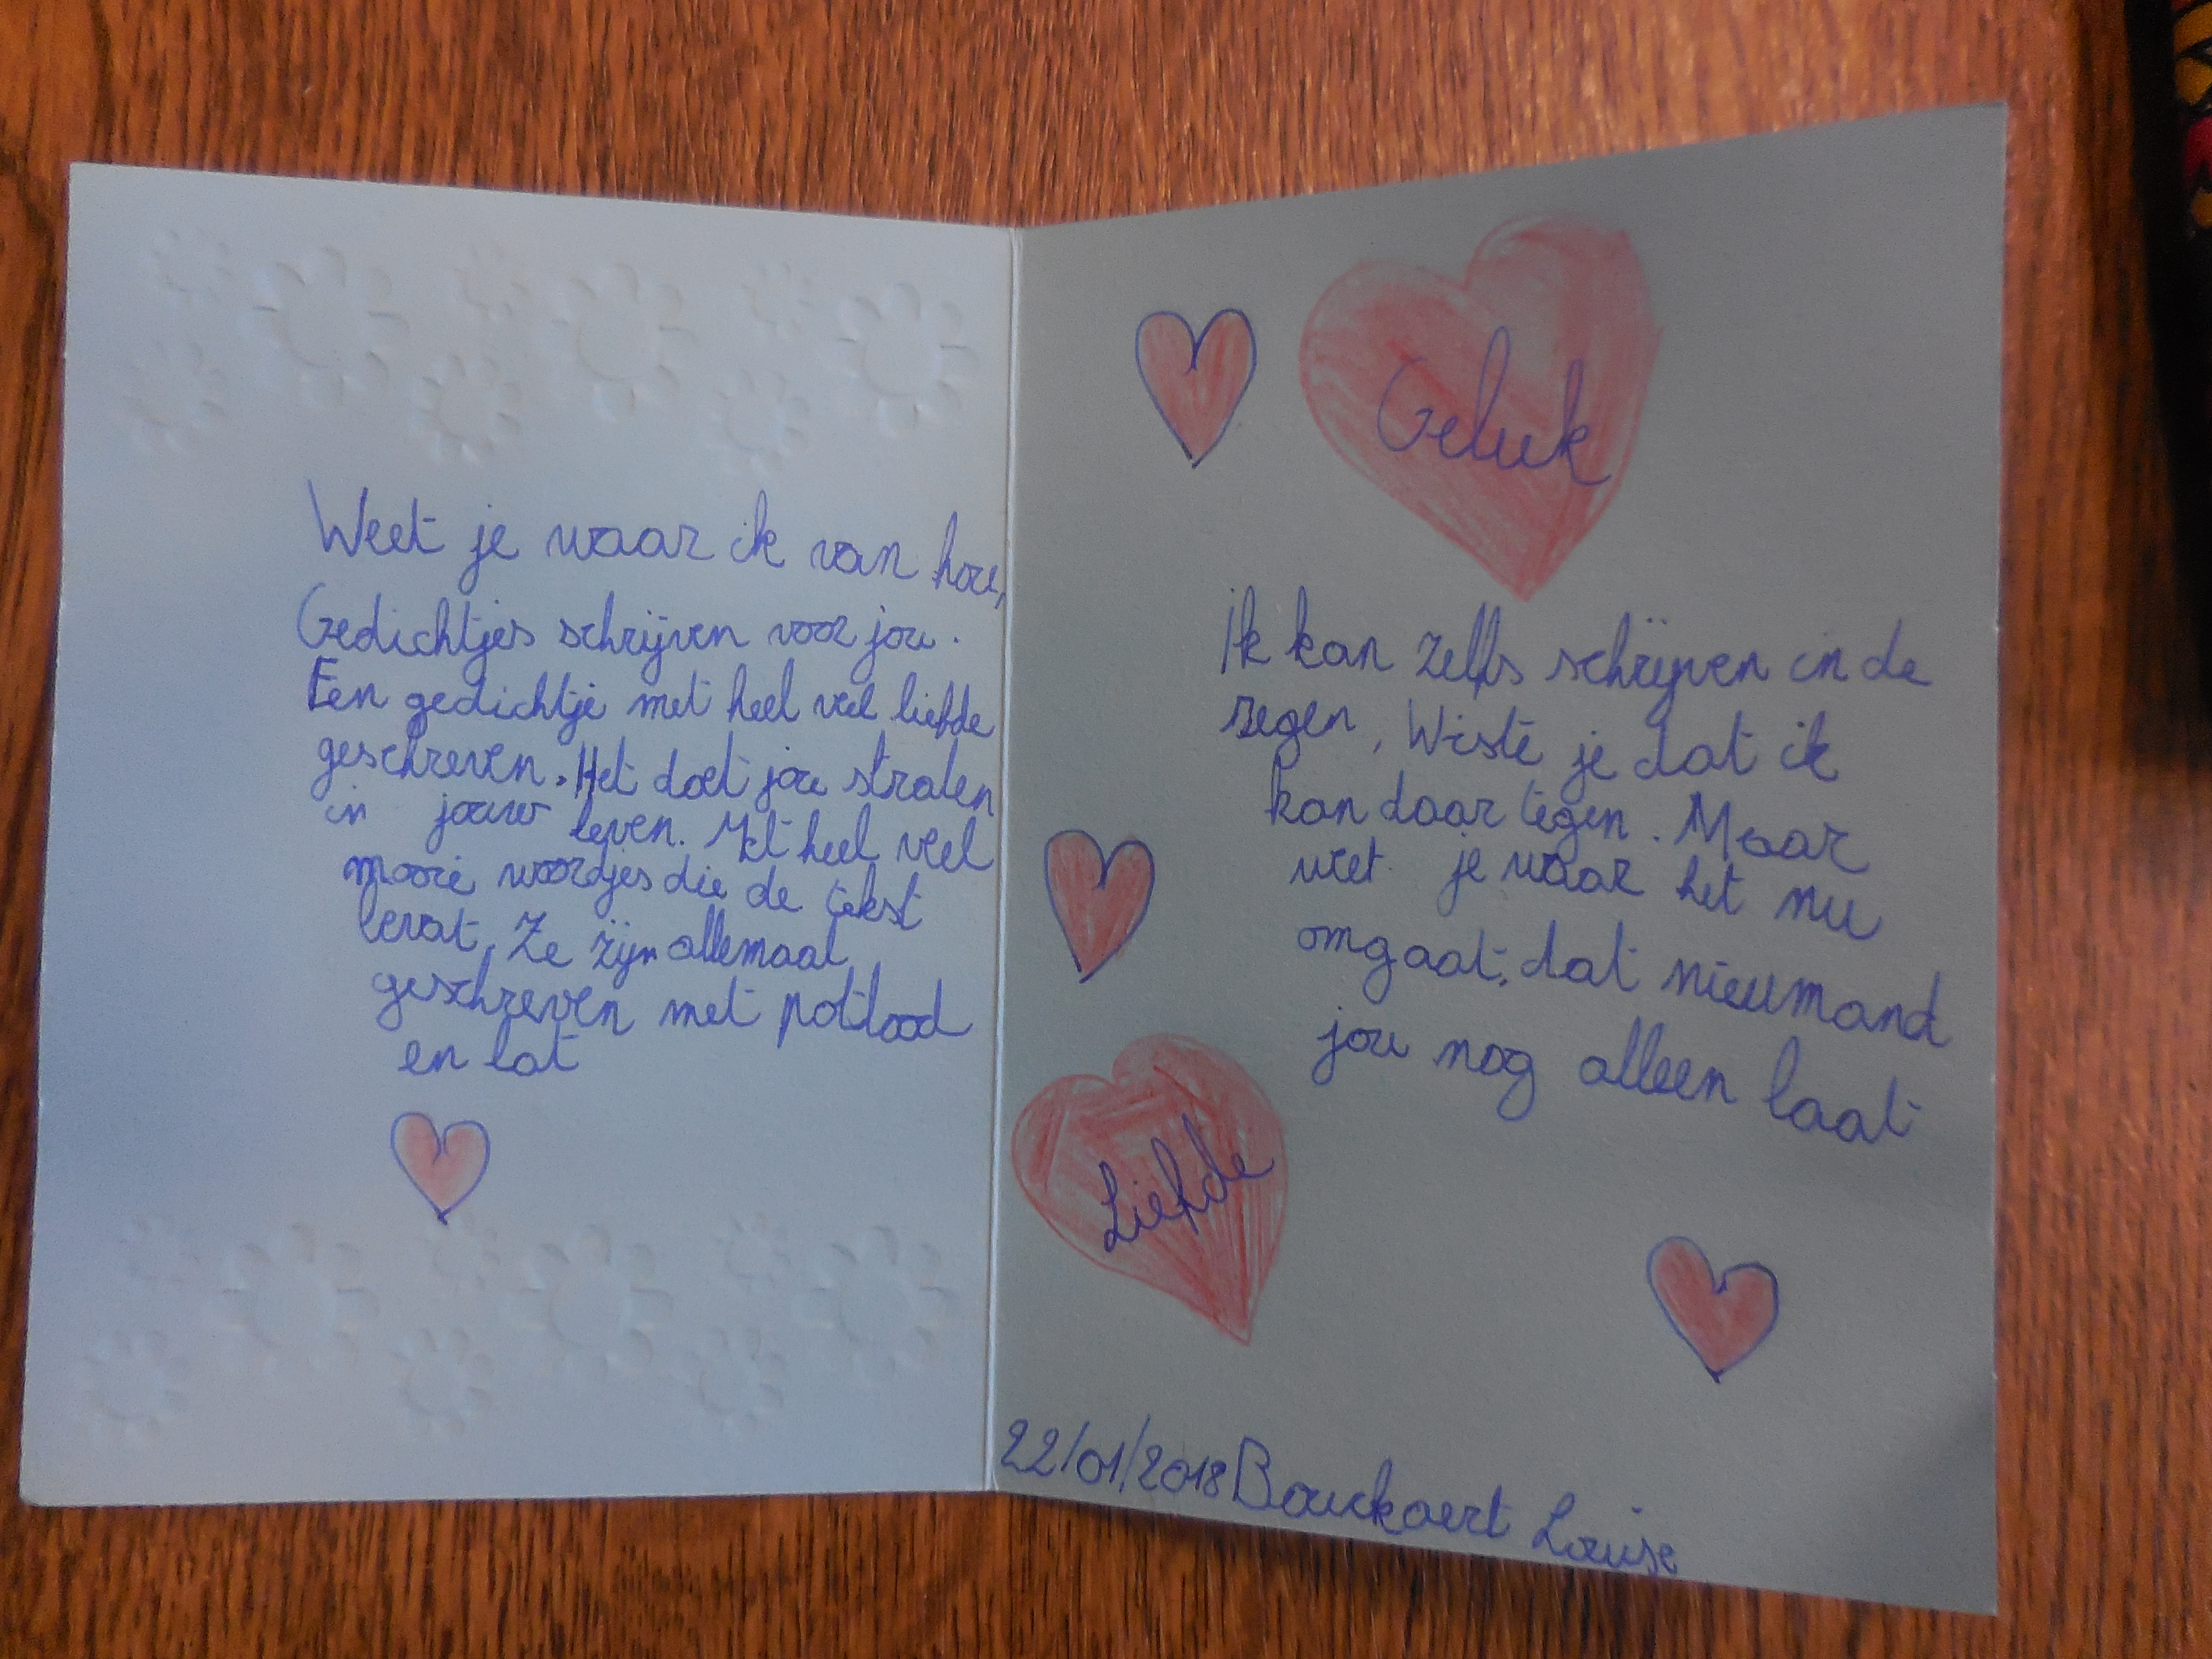 Weet je waar ik van hou,
Gedichtjes schrijven voor jou.
Een gedichtje met heel veel liefde
geschreven. Het doet jou stralen
in jouw leven. Met heel veel
mooie woordjes die de tekst
bevat. Ze zijn allemaal
geschreven met potlood
en lat
Geluk
Ik kan zelfs schrijven in de
regen, Wiste je dat ik
kan daar tegen. Maar
weet je waar het nu
omgaat, dat nieumand
jou nog alleen laat
Liefde
22/01/2018 Bouckaert Louise